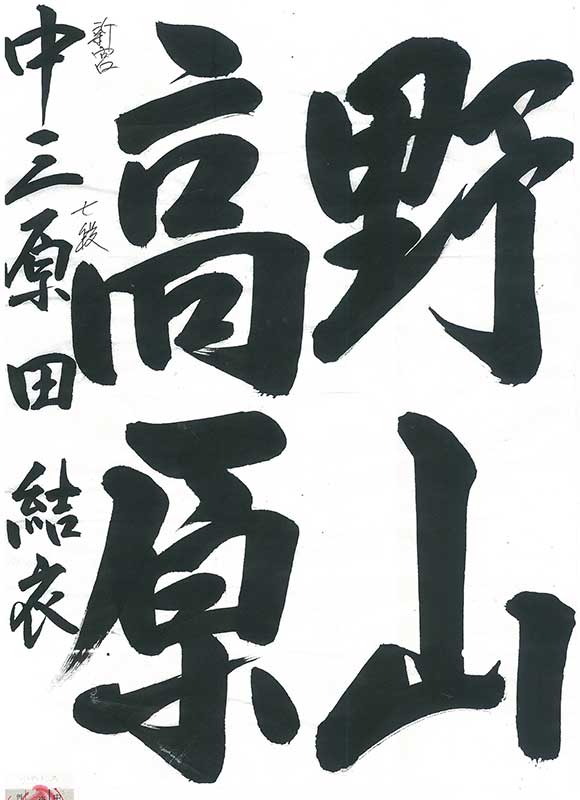 野山
高原
新宮
七段
中三原田結衣